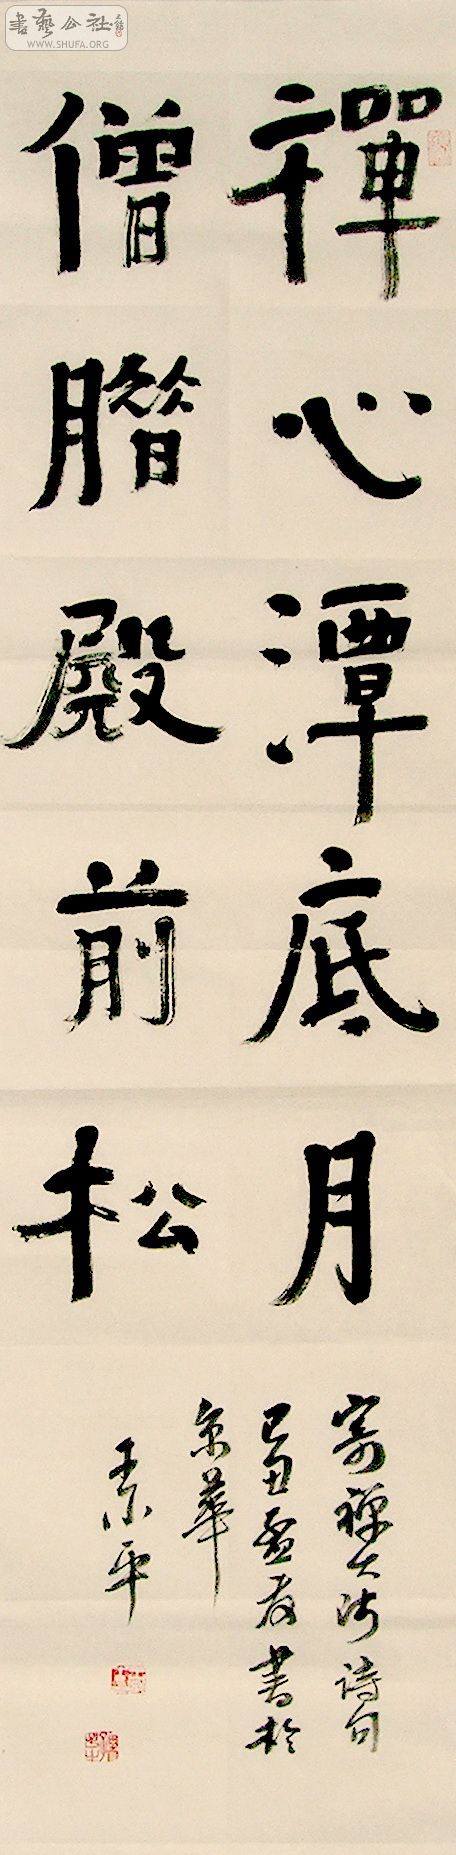 禪心潭底月
僧臘殿前松
寄禪大師詩句
己丑孟春書於
京華
王家平
書藝公社
WWW.SHUFA.ORG